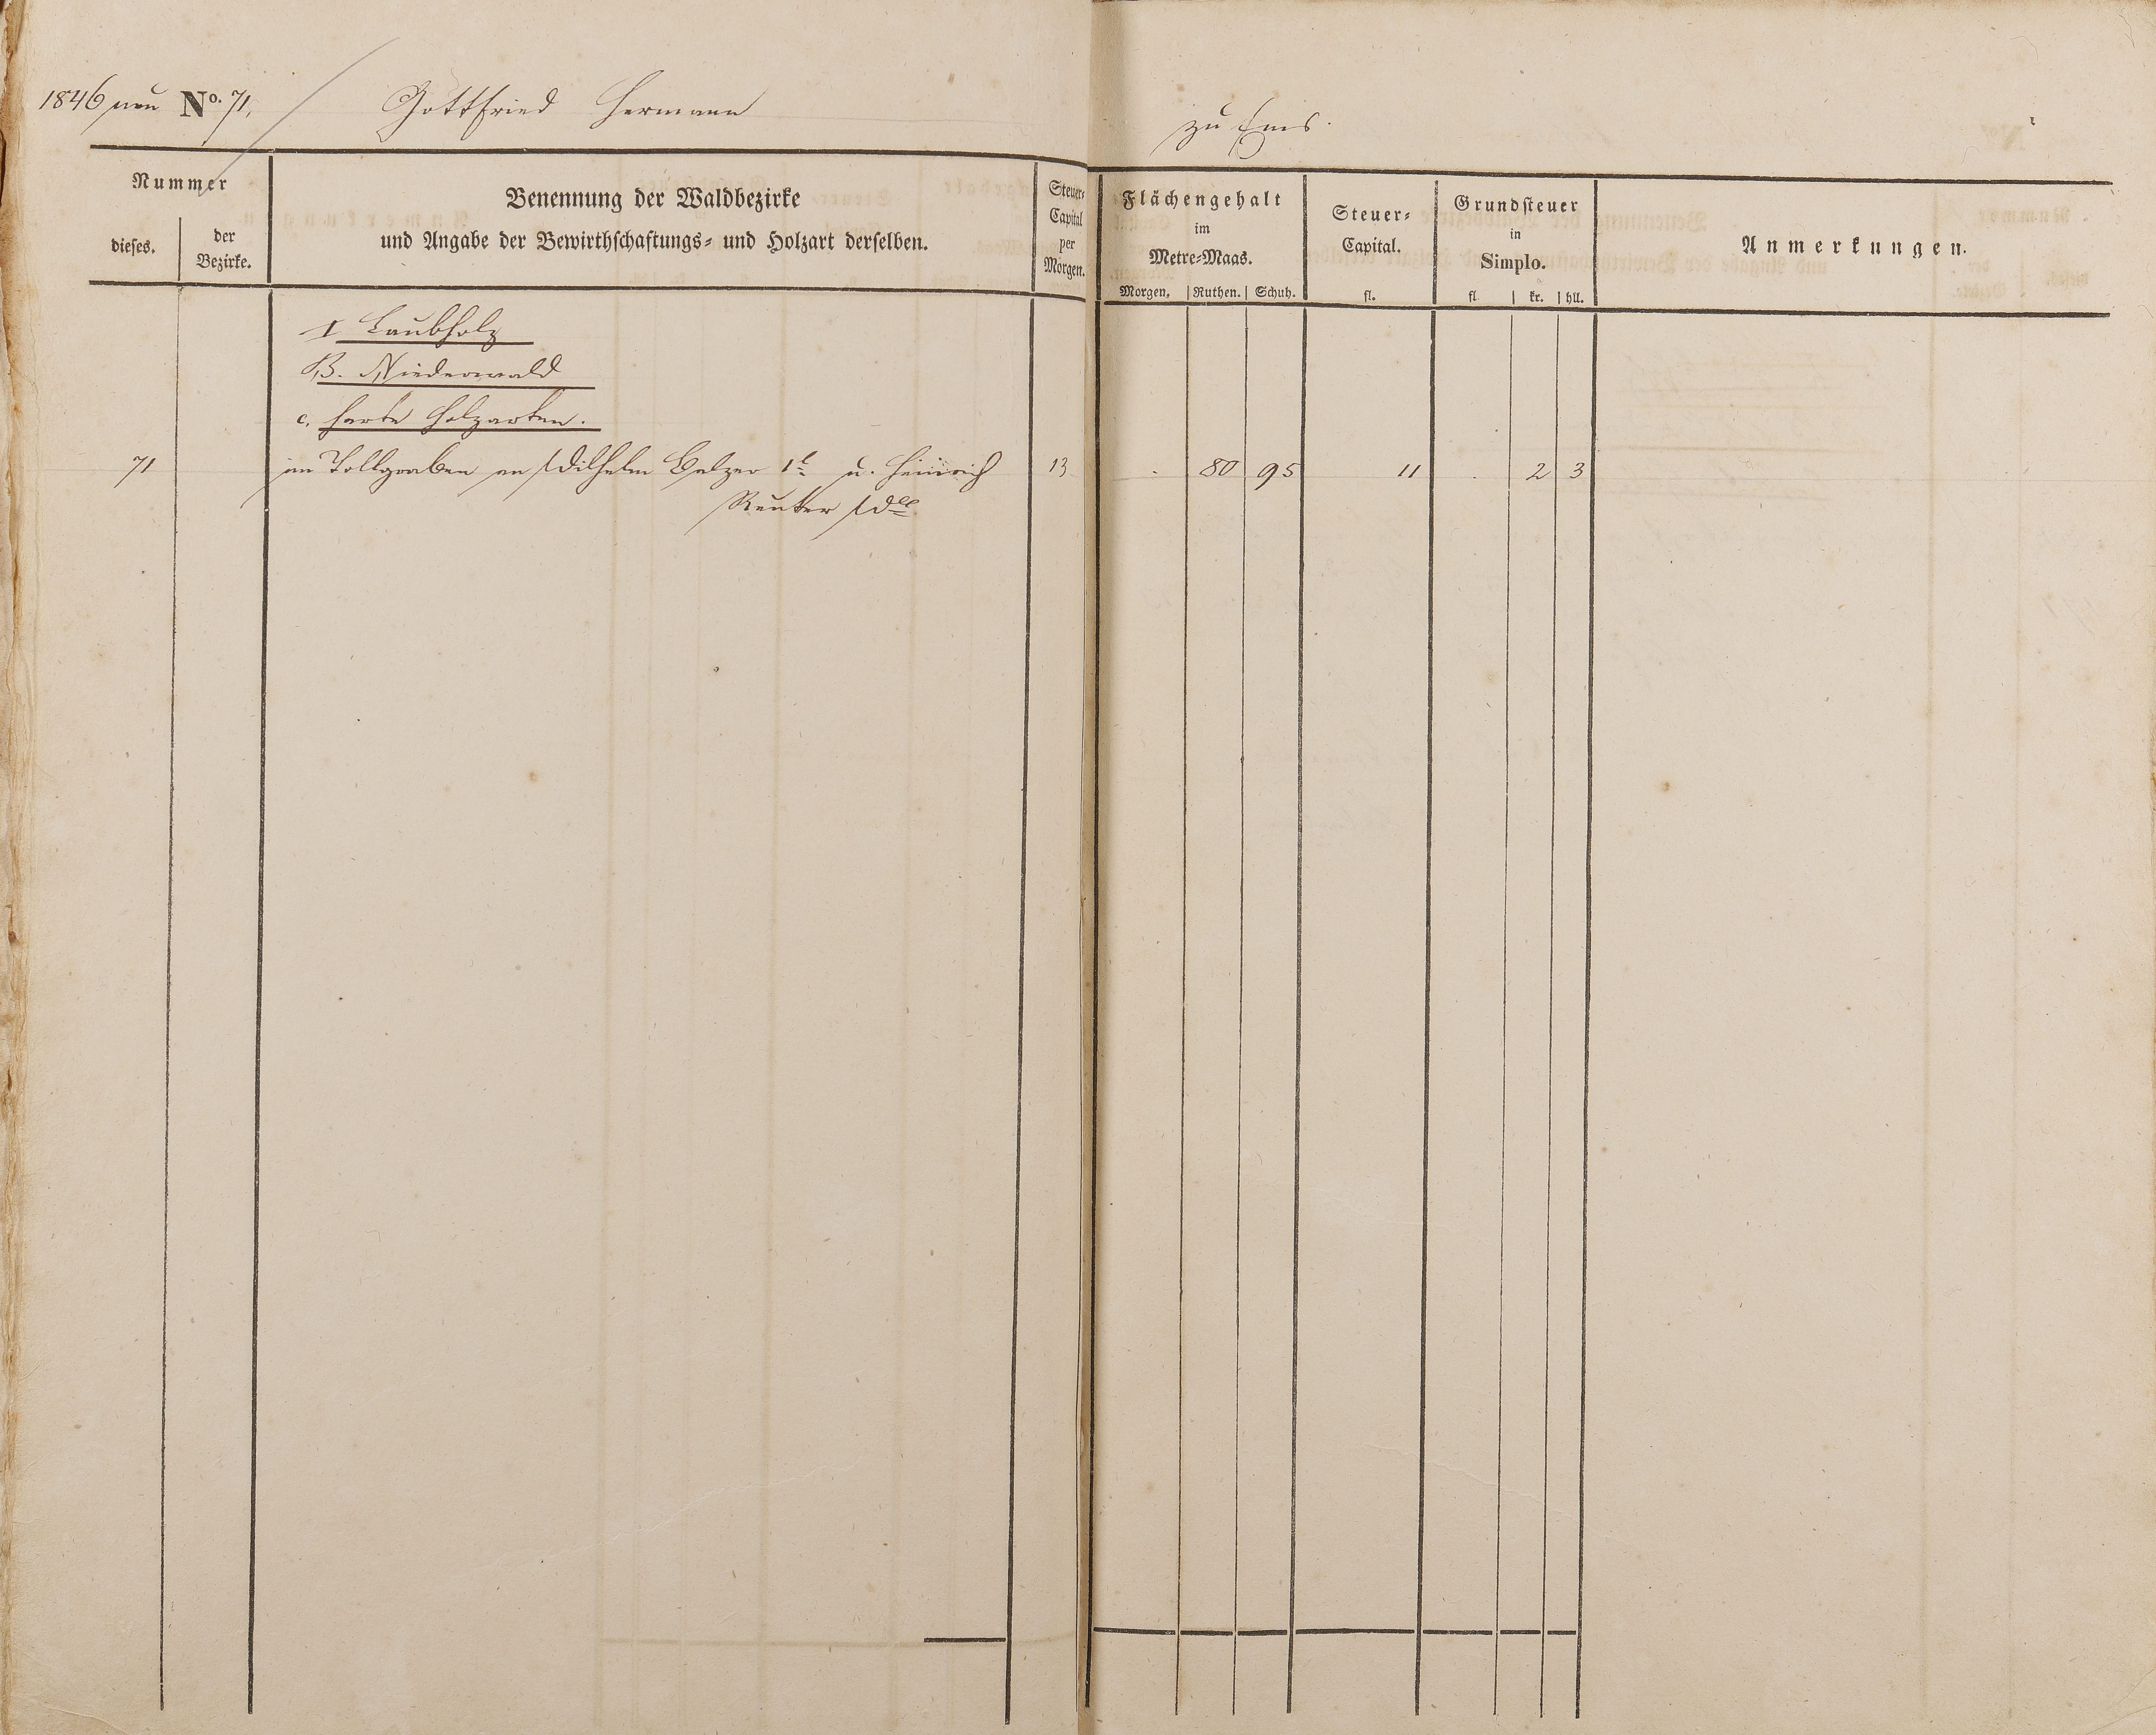 1846 neu No. 71.
Gottfried Hermann
zu Ems.
Nummer
dieses.
der
Bezirke.
Benennung der Waldbezirke
und Angabe der Bewirthschaftungs= und Holzart derselben.
Steuer=
Capital
per
Morgen.
Flächengehalt
im
Metre=Maas.
Morgen. Ruthen. Schuh.
Steuer=
Capital.
fl.
Grundsteuer
in
Simplo.
fl. kr. hll.
Anmerkungen.
I Laubholz
B. Niederwald
c. harte Holzarten.
71 im Tollgraben an Wilhelm Balzer 1t u. Heinrich 13 . 80 95 11 . 2 3
Reuter